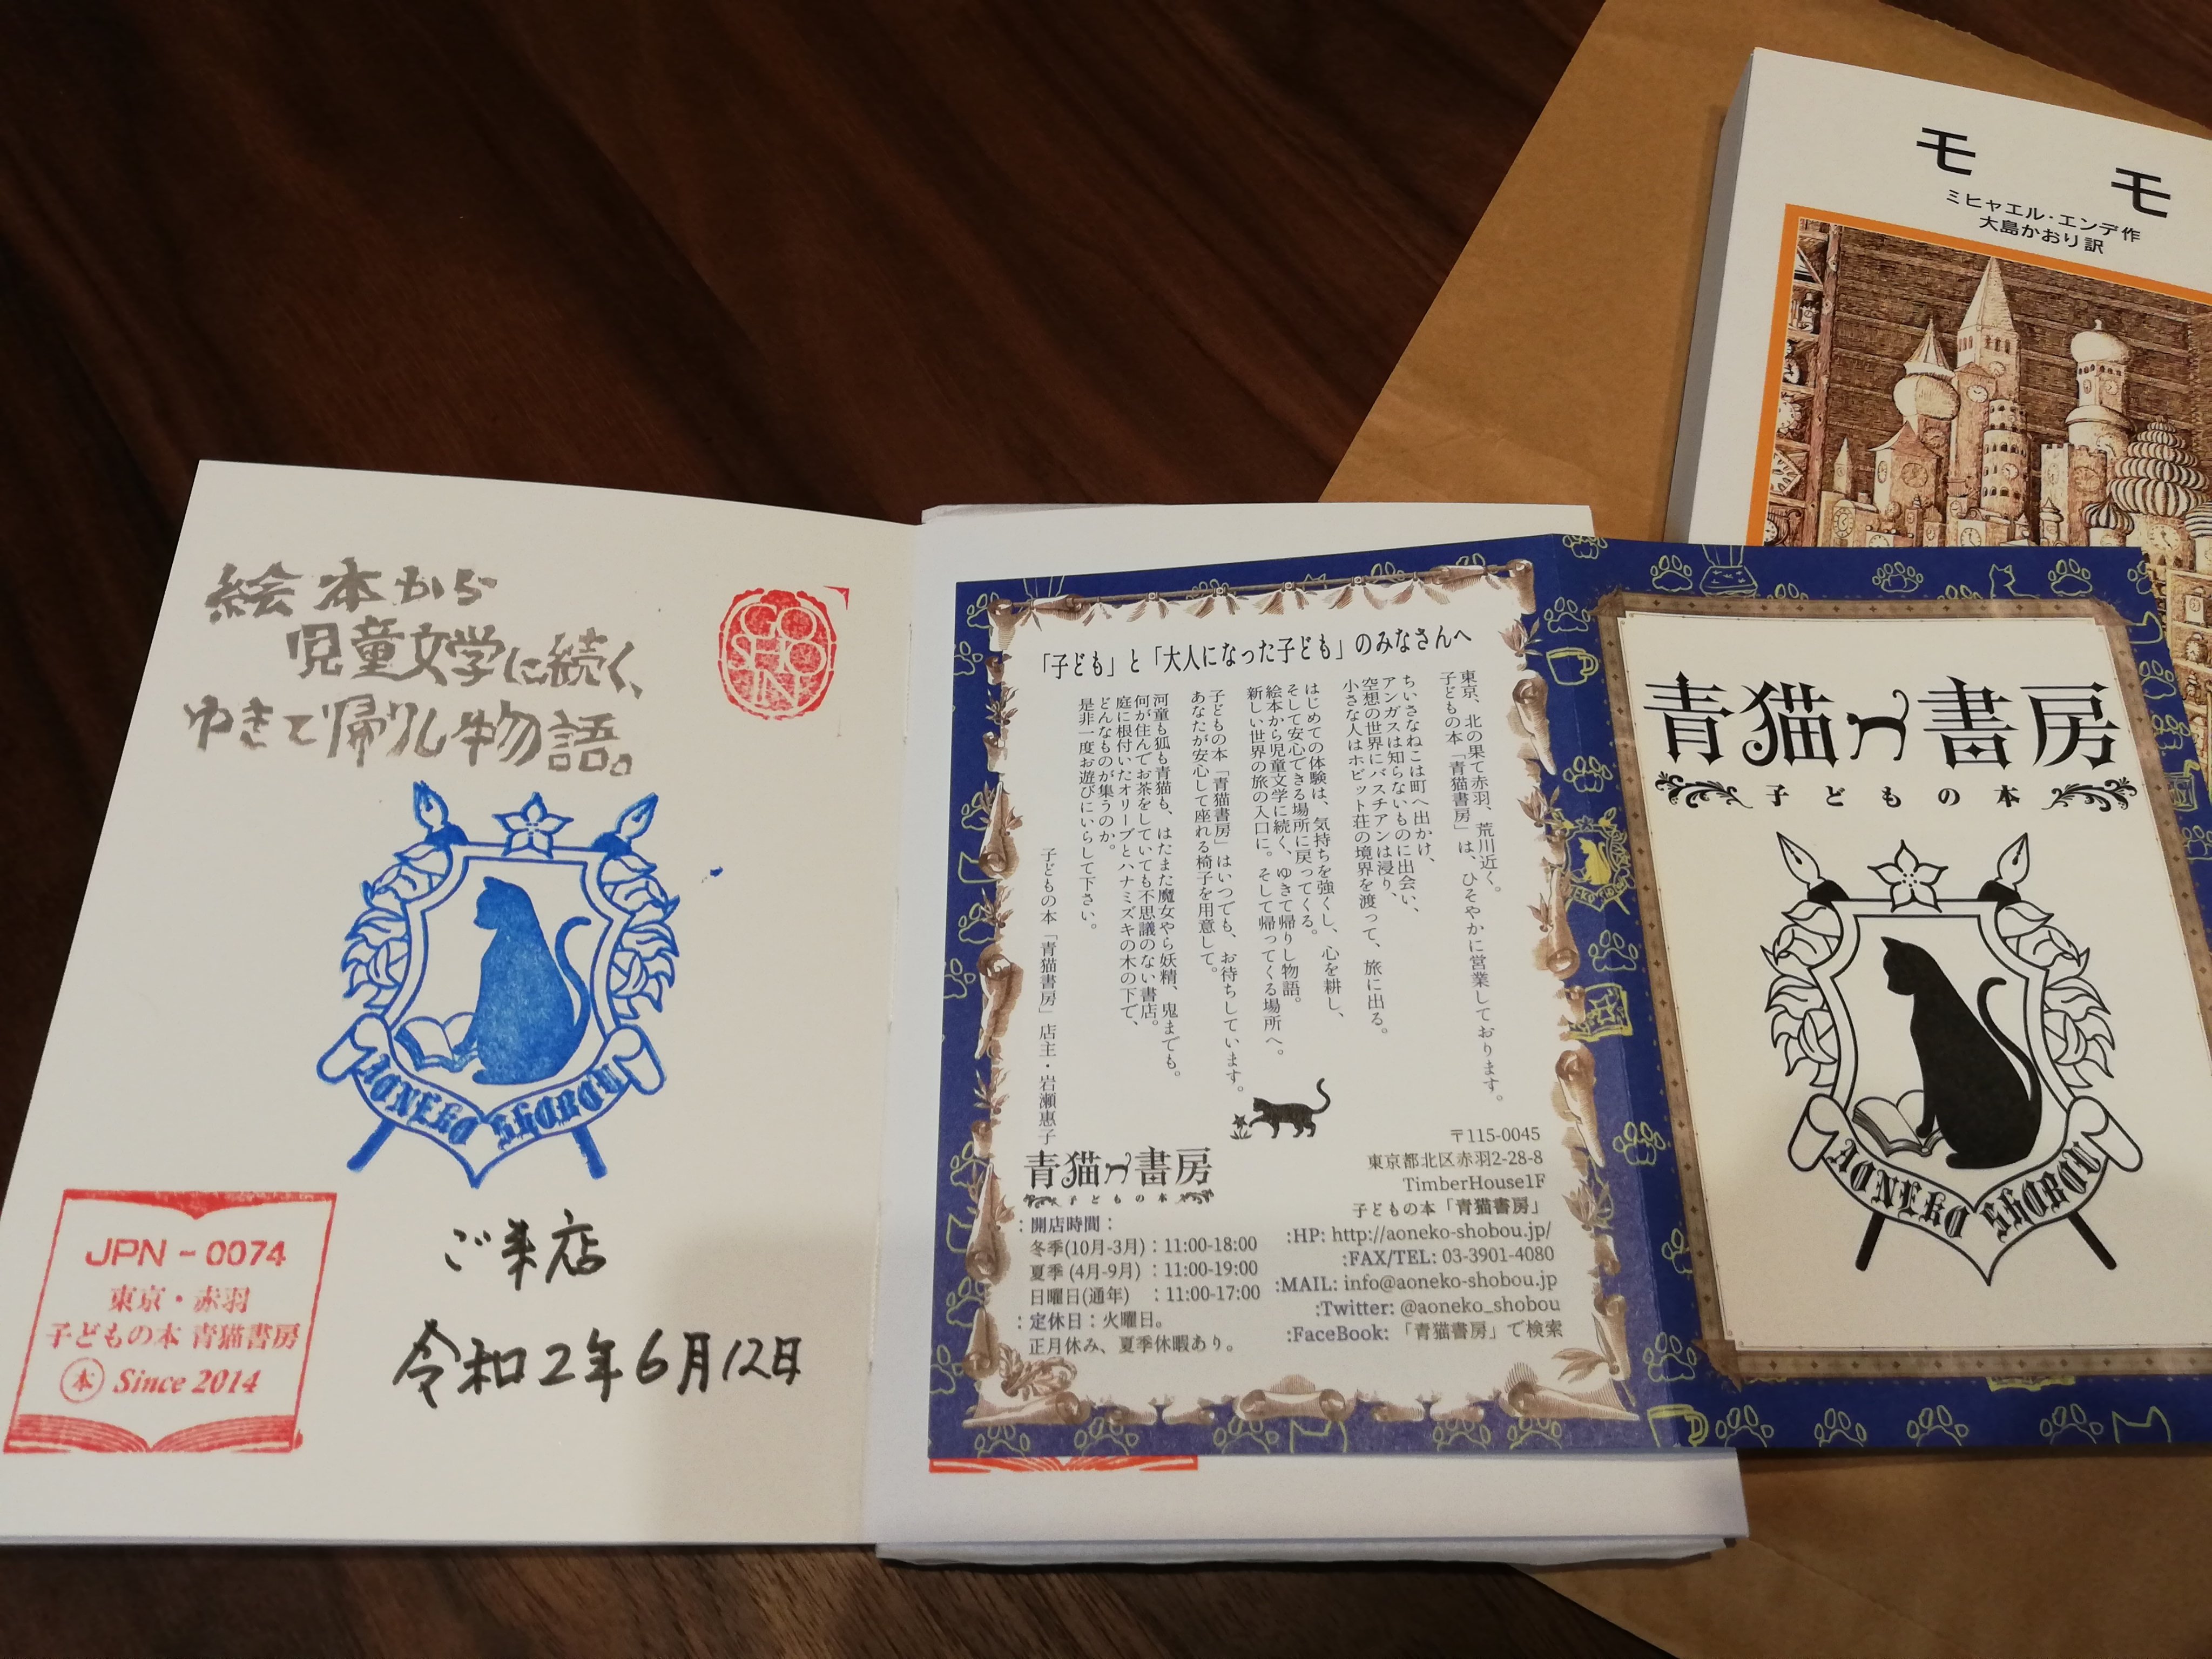 絵本から
児童文学に続く、
ゆきて帰りし物語。
GO
SHO
IN
AONEKO SHOBOU
JPN-0074
東京・赤羽
子どもの本 青猫書房
本 Since 2014
ご来店
令和2年6月12日
「子ども」と「大人になった子ども」のみなさんへ
東京、北の果て赤羽、荒川近く。
子どもの本「青猫書房」は、ひそやかに営業しております。
ちいさなねこは町へ出かけ、
アンガスは知らないものに出会い、
空想の世界にバスチアンは浸り、
小さな人はホビット荘の境界を渡って、旅に出る。
はじめての体験は、気持ちを強くし、心を耕し、
そして安心できる場所に戻ってくる。
絵本から児童文学に続く、ゆきて帰りし物語。
新しい世界の旅の入口に。そして帰ってくる場所へ。
子どもの本「青猫書房」はいつでも、お待ちしています。
あなたが安心して座れる椅子を用意して。
河童も狐も青猫も、はたまた魔女やら妖精、鬼までも。
何が住んでお茶をしていても不思議のない書店。
庭に根付いたオリーブとハナミズキの木の下で、
どんなものが集うのか。
是非一度お遊びにいらして下さい。
子どもの本「青猫書房」店主・岩瀬惠子
青猫書房
子どもの本
:開店時間:
冬季(10月-3月):11:00-18:00
夏季(4月-9月):11:00-19:00
日曜日(通年) :11:00-17:00
:定休日:火曜日。
正月休み、夏季休暇あり。
〒115-0045
東京都北区赤羽2-28-8
TimberHouse1F
子どもの本「青猫書房」
:HP: http://aoneko-shobou.jp/
:FAX/TEL: 03-3901-4080
:MAIL: info@aoneko-shobou.jp
:Twitter: @aoneko_shobou
:FaceBook: 「青猫書房」で検索
青猫書房
子どもの本
AONEKO SHOBOU
モモ
ミヒャエル・エンデ作
大島かおり訳